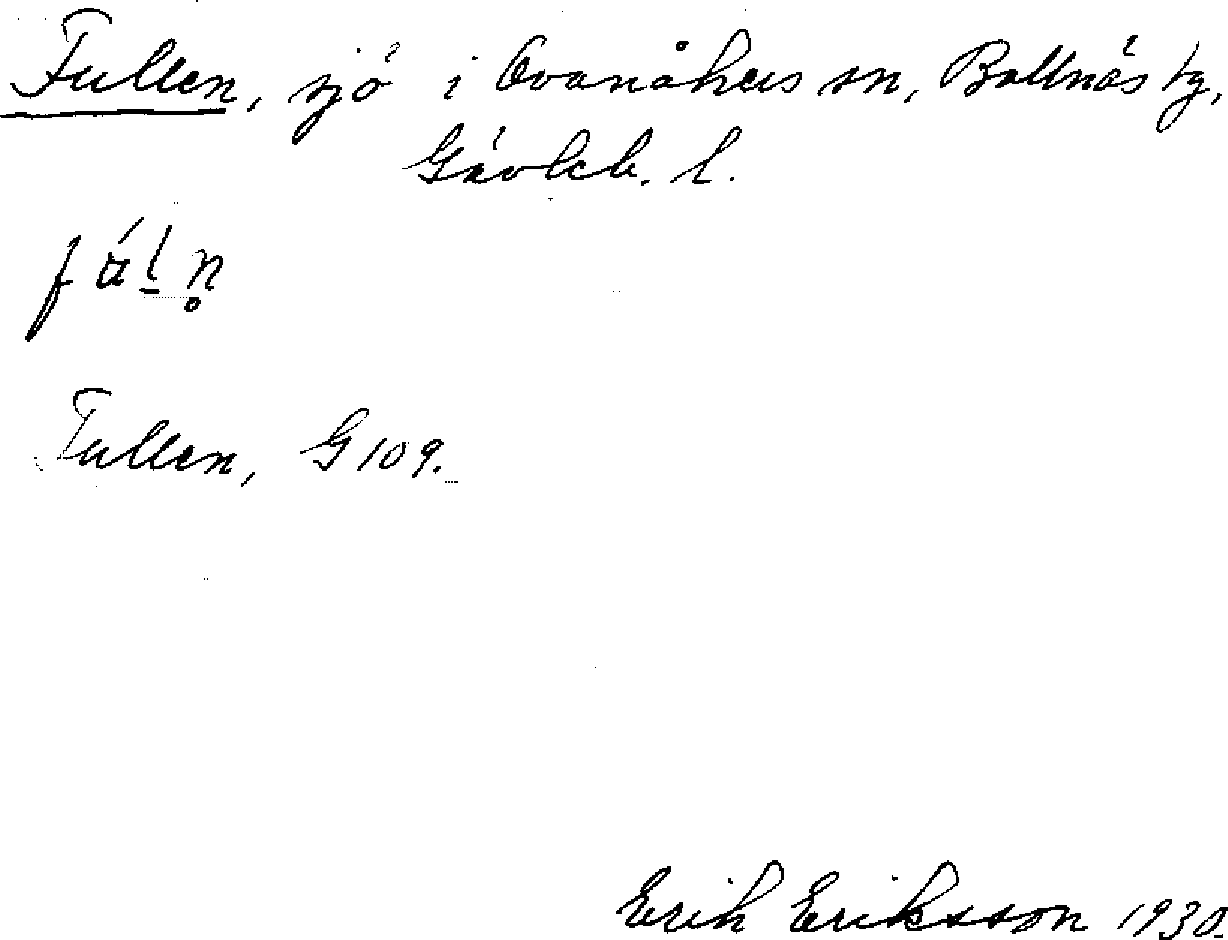 Fullen, sjö i Ovanåkers sn, Bollnäs tg,
Gävleb. l.
Fullen, G 109.
Erik Eriksson 1930.